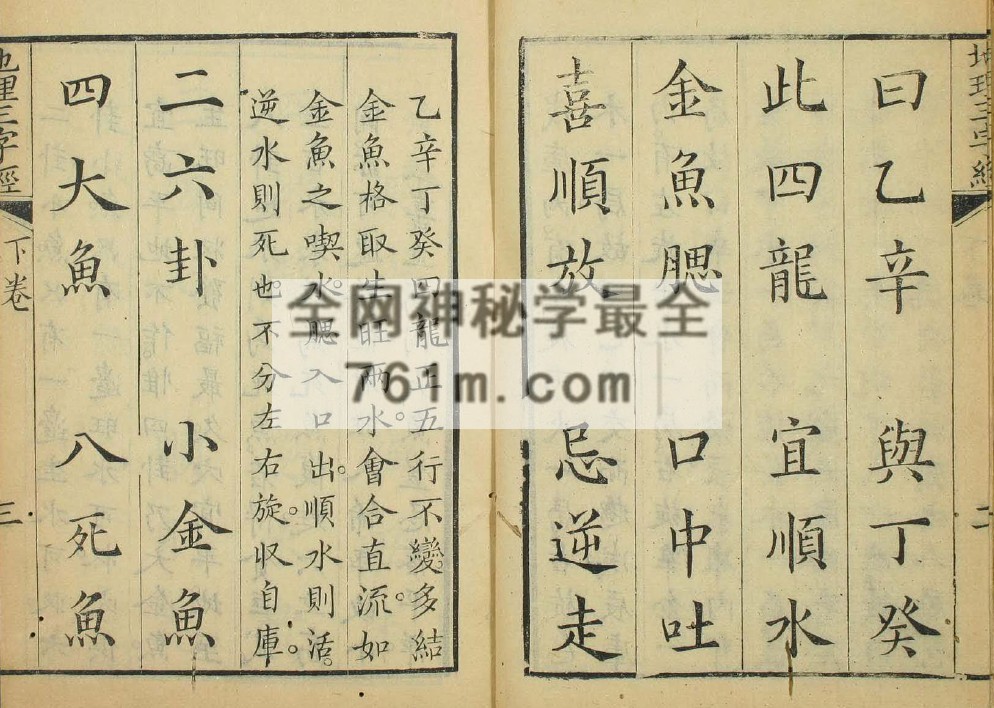 地理三字經
二
曰乙辛 與丁癸
此四龍 宜順水
金魚腮 口中吐
喜順放 忌逆走
乙辛丁癸四龍正五行不變多結
金魚格取生旺兩水會合直流如
金魚之喫水腮入口出順水則活
逆水則死也不分左右旋收自庫
二六卦 小金魚
四大魚 八死魚
地理三字經
下卷
三
全网神秘学最全
761m.com